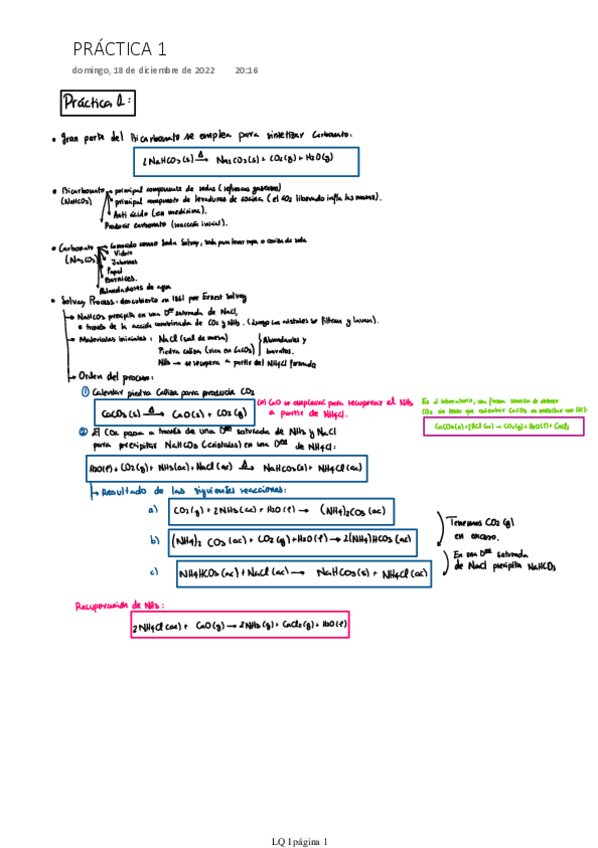 PRÁCTICA 1
domingo, 18 de diciembre de 2022 20:16
Práctica 1:
• Gran parte del Bicarbonato se emplea para sintetizar Carbonato:
2NaHCO3(s) Δ→ Na2CO3(s) + CO2(g) + H2O(g)
• Bicarbonato → principal componente de sodas (refrescos gaseosos)
(NaHCO3) principal compuesto de levaduras de cocina (el CO2 liberado infla las masas).
Anti ácido (en medicina).
Producir carbonato (reacción inicial).
• Carbonato → Conocido como Soda Solvay, soda para lavar ropa o cristales de soda
(Na2CO3) Vidrio
Jabones
Papel
Barnices.
Ablandadores de agua
• Solvay Process: descubierto en 1861 por Ernest Solvay
→ NaHCO3 precipita en una Dson saturada de NaCl,
a través de la acción combinada de CO2 y NH3. (Luego los cristales se filtran y lavan).
→ Materiales iniciales: NaCl (sal de mesa) Abundantes y
Piedra caliza (rica en CaCO3) baratos.
NH3 → se recupera a partir del NH4Cl formado
→ Orden del proceso:
① Calentar piedra Caliza para producir CO2
CaCO3(s) Δ→ CaO(s) + CO2(g)
CaO se empleará para recuperar el NH3
a partir de NH4Cl.
En el laboratorio, una forma sencilla de obtener
CO2 sin tener que calentar CaCO3 es mezclar con HCl
CaCO3(s) + 2HCl(ac) → CO2(g) + H2O(l) + CaCl2
② El CO2 pasa a través de una Dson saturada de NH3 y NaCl
para precipitar NaHCO3 (cristales) en una Dson de NH4Cl:
H2O(l) + CO2(g) + NH3(ac) + NaCl(ac) Δ→ NaHCO3(s) + NH4Cl(ac)
→ Resultado de las siguientes reacciones:
a) CO2(g) + 2NH3(ac) + H2O(l) → (NH4)2CO3(ac)
b) (NH4)2CO3(ac) + CO2(g) + H2O(l) → 2(NH4)HCO3(ac)
Tenemos CO2(g)
en exceso.
c) NH4HCO3(ac) + NaCl(ac) → NaHCO3(s) + NH4Cl(ac)
En una Dson saturada
de NaCl precipita NaHCO3
Recuperación de NH3:
2NH4Cl(ac) + CaO(g) → 2NH3(g) + CaCl2(g) + H2O(l)
LQ I página 1